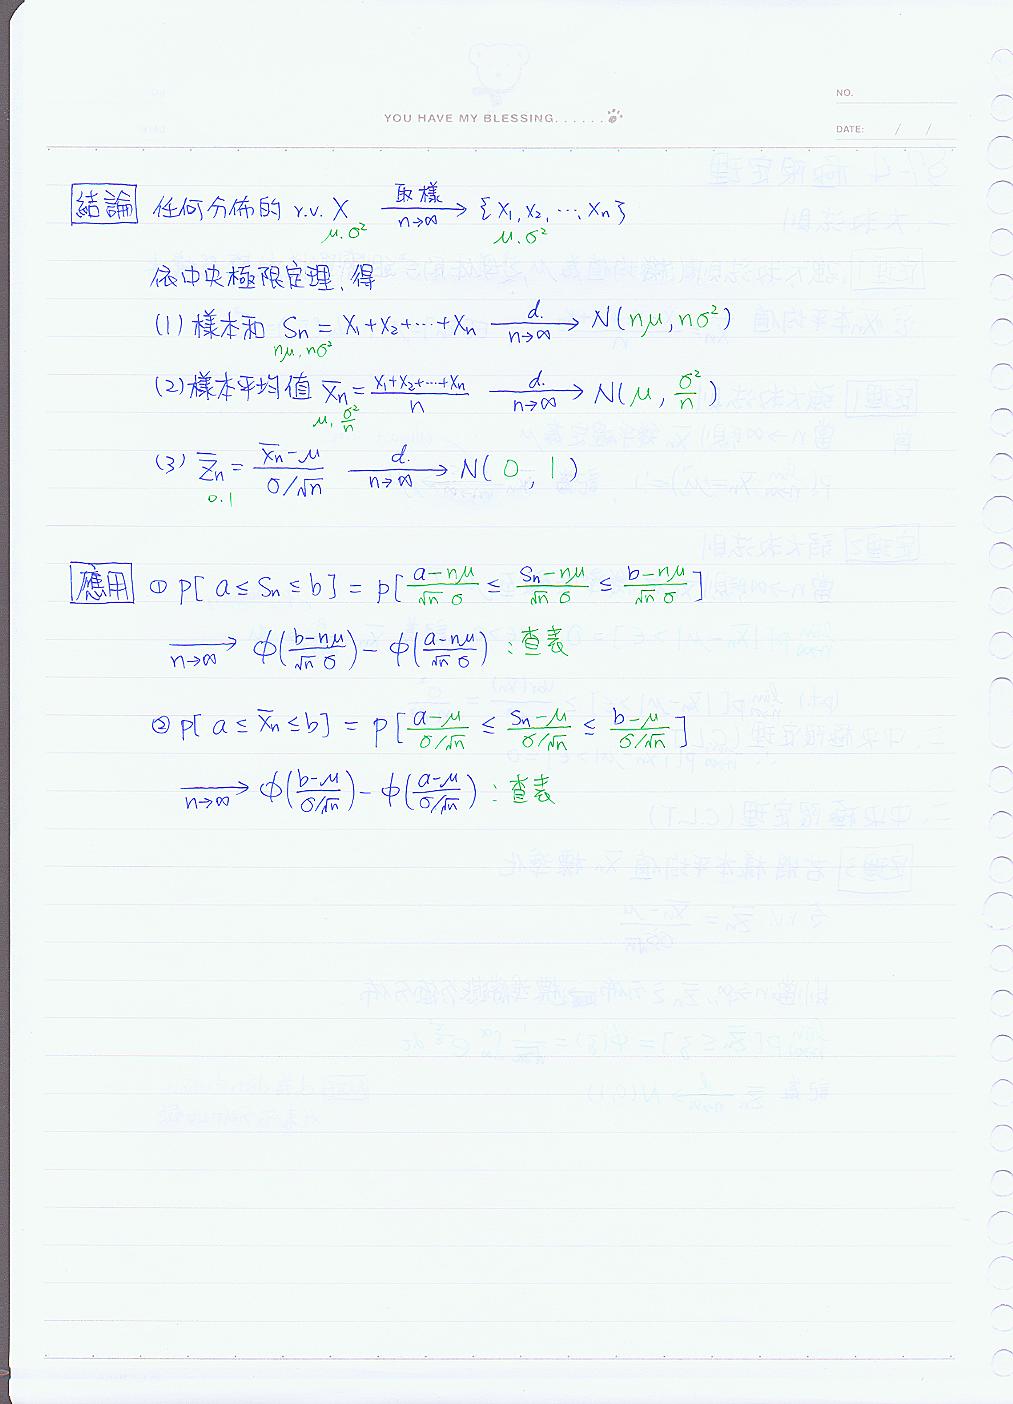 YOU HAVE MY BLESSING......
NO.
DATE: / /
結論 任何分佈的 r.v. X 取樣 n→∞ {X₁, X₂, ⋯, Xn}
μ.σ² μ.σ²
依中央極限定理,得
(1) 樣本和 Sn = X₁+X₂+⋯+Xn d. n→∞ N(nμ, nσ²)
nμ, nσ²
(2) 樣本平均值 X̄n = (X₁+X₂+⋯+Xn)/n d. n→∞ N(μ, σ²/n)
μ, σ²/n
(3) Z̄n = (X̄n-μ)/(σ/√n) d. n→∞ N(0, 1)
0.1
應用 ① P[a ≤ Sn ≤ b] = P[(a-nμ)/(√n σ) ≤ (Sn-nμ)/(√n σ) ≤ (b-nμ)/(√n σ)]
n→∞ ϕ((b-nμ)/(√n σ)) - ϕ((a-nμ)/(√n σ)) : 查表
② P[a ≤ X̄n ≤ b] = P[(a-μ)/(σ/√n) ≤ (Sn-μ)/(σ/√n) ≤ (b-μ)/(σ/√n)]
n→∞ ϕ((b-μ)/(σ/√n)) - ϕ((a-μ)/(σ/√n)) : 查表